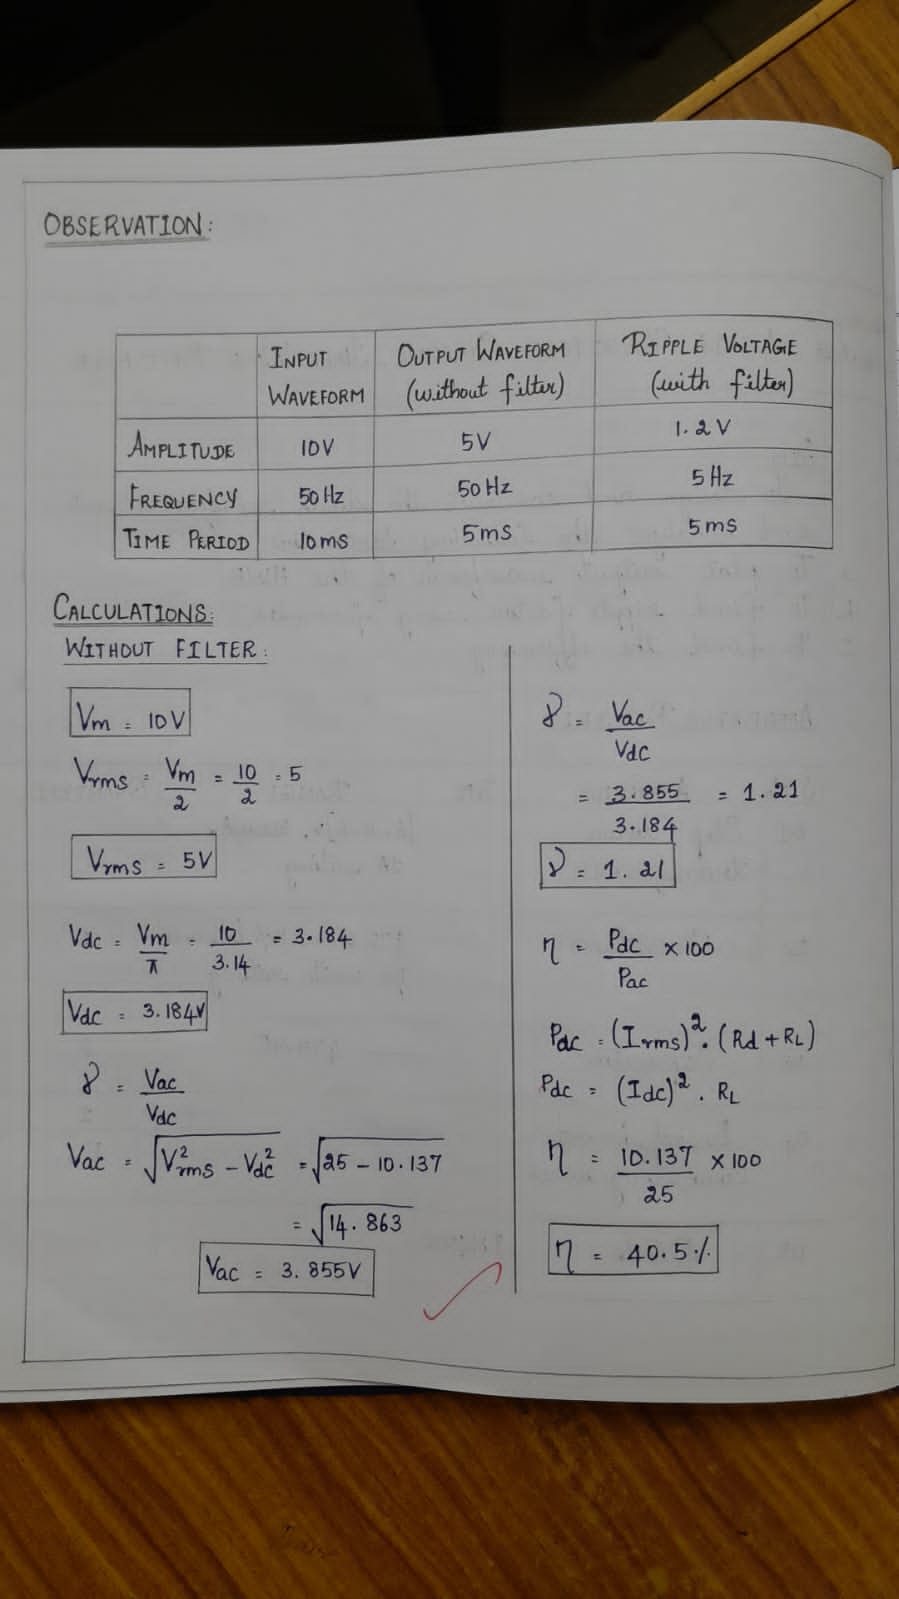 OBSERVATION:
INPUT WAVEFORM | OUTPUT WAVEFORM (without filter) | RIPPLE VOLTAGE (with filter)
AMPLITUDE | 10V | 5V | 1.2V
FREQUENCY | 50 Hz | 50 Hz | 5 Hz
TIME PERIOD | 10ms | 5ms | 5ms
CALCULATIONS:
WITHOUT FILTER:
Vm = 10V
Vrms = Vm/2 = 10/2 = 5
Vrms = 5V
Vdc = Vm/π = 10/3.14 = 3.184
Vdc = 3.184V
γ = Vac/Vdc
Vac = √(V²rms - Vdc²) = √(25 - 10.137)
= √14.863
Vac = 3.855V
γ = Vac/Vdc
= 3.855/3.184 = 1.21
γ = 1.21
η = Pdc/Pac × 100
Pdc = (Irms)². (Rd + RL)
Pdc = (Idc)². RL
η = 10.137/25 × 100
η = 40.5%